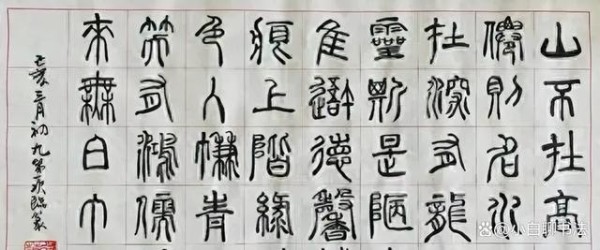 山不在高
僊則名水
在深有龍
靈斯是陋
隹吾德馨
痕上階綠
色入簾青
笑有鴻儒
來無白丁
己亥三月初九第臨篆
@小白聊书法